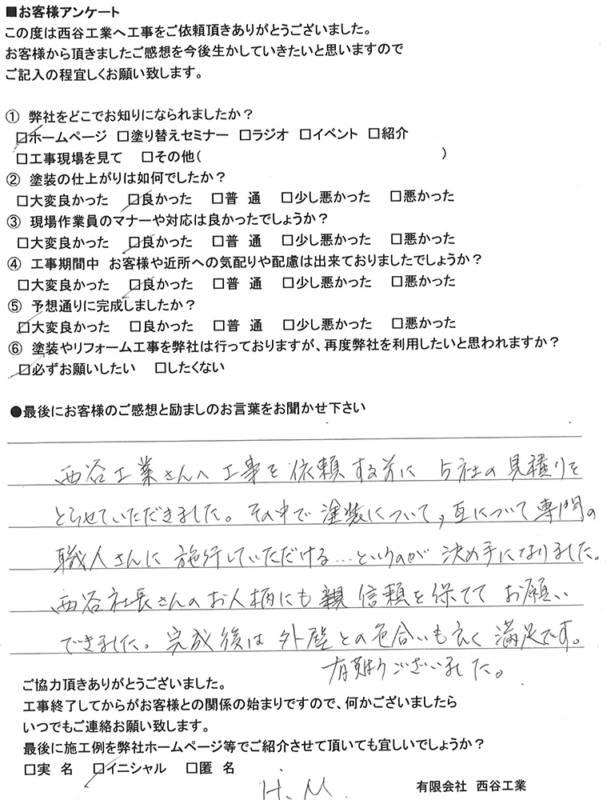 ■お客様アンケート
この度は西谷工業へ工事をご依頼頂きありがとうございました。
お客様から頂きましたご感想を今後生かしていきたいと思いますので
ご記入の程宜しくお願い致します。
① 弊社をどこでお知りになられましたか？
☑ホームページ □塗り替えセミナー □ラジオ □イベント □紹介
□工事現場を見て □その他( )
② 塗装の仕上がりは如何でしたか？
□大変良かった ☑良かった □普 通 □少し悪かった □悪かった
③ 現場作業員のマナーや対応は良かったでしょうか？
□大変良かった ☑良かった □普 通 □少し悪かった □悪かった
④ 工事期間中 お客様や近所への気配りや配慮は出来ておりましたでしょうか？
□大変良かった ☑良かった □普 通 □少し悪かった □悪かった
⑤ 予想通りに完成しましたか？
☑大変良かった □良かった □普 通 □少し悪かった □悪かった
⑥ 塗装やリフォーム工事を弊社は行っておりますが、再度弊社を利用したいと思われますか？
☑必ずお願いしたい □したくない
●最後にお客様のご感想と励ましのお言葉をお聞かせ下さい
西谷工業さんへ工事を依頼する前に 5社の見積りを
とらせていただきました。その中で塗装について, 瓦について専門の
職人さんに施行していただける…というのが決め手になりました。
西谷社長さんのお人柄にも 信頼を保てて お願い
できました。完成後は外壁との色合いも良く満足です。
有難うございました。
ご協力頂きありがとうございました。
工事終了してからがお客様との関係の始まりですので、何かございましたら
いつでもご連絡お願い致します。
最後に施工例を弊社ホームページ等でご紹介させて頂いても宜しいでしょうか？
□実 名 ☑イニシャル □匿 名
H. M.
有限会社 西谷工業